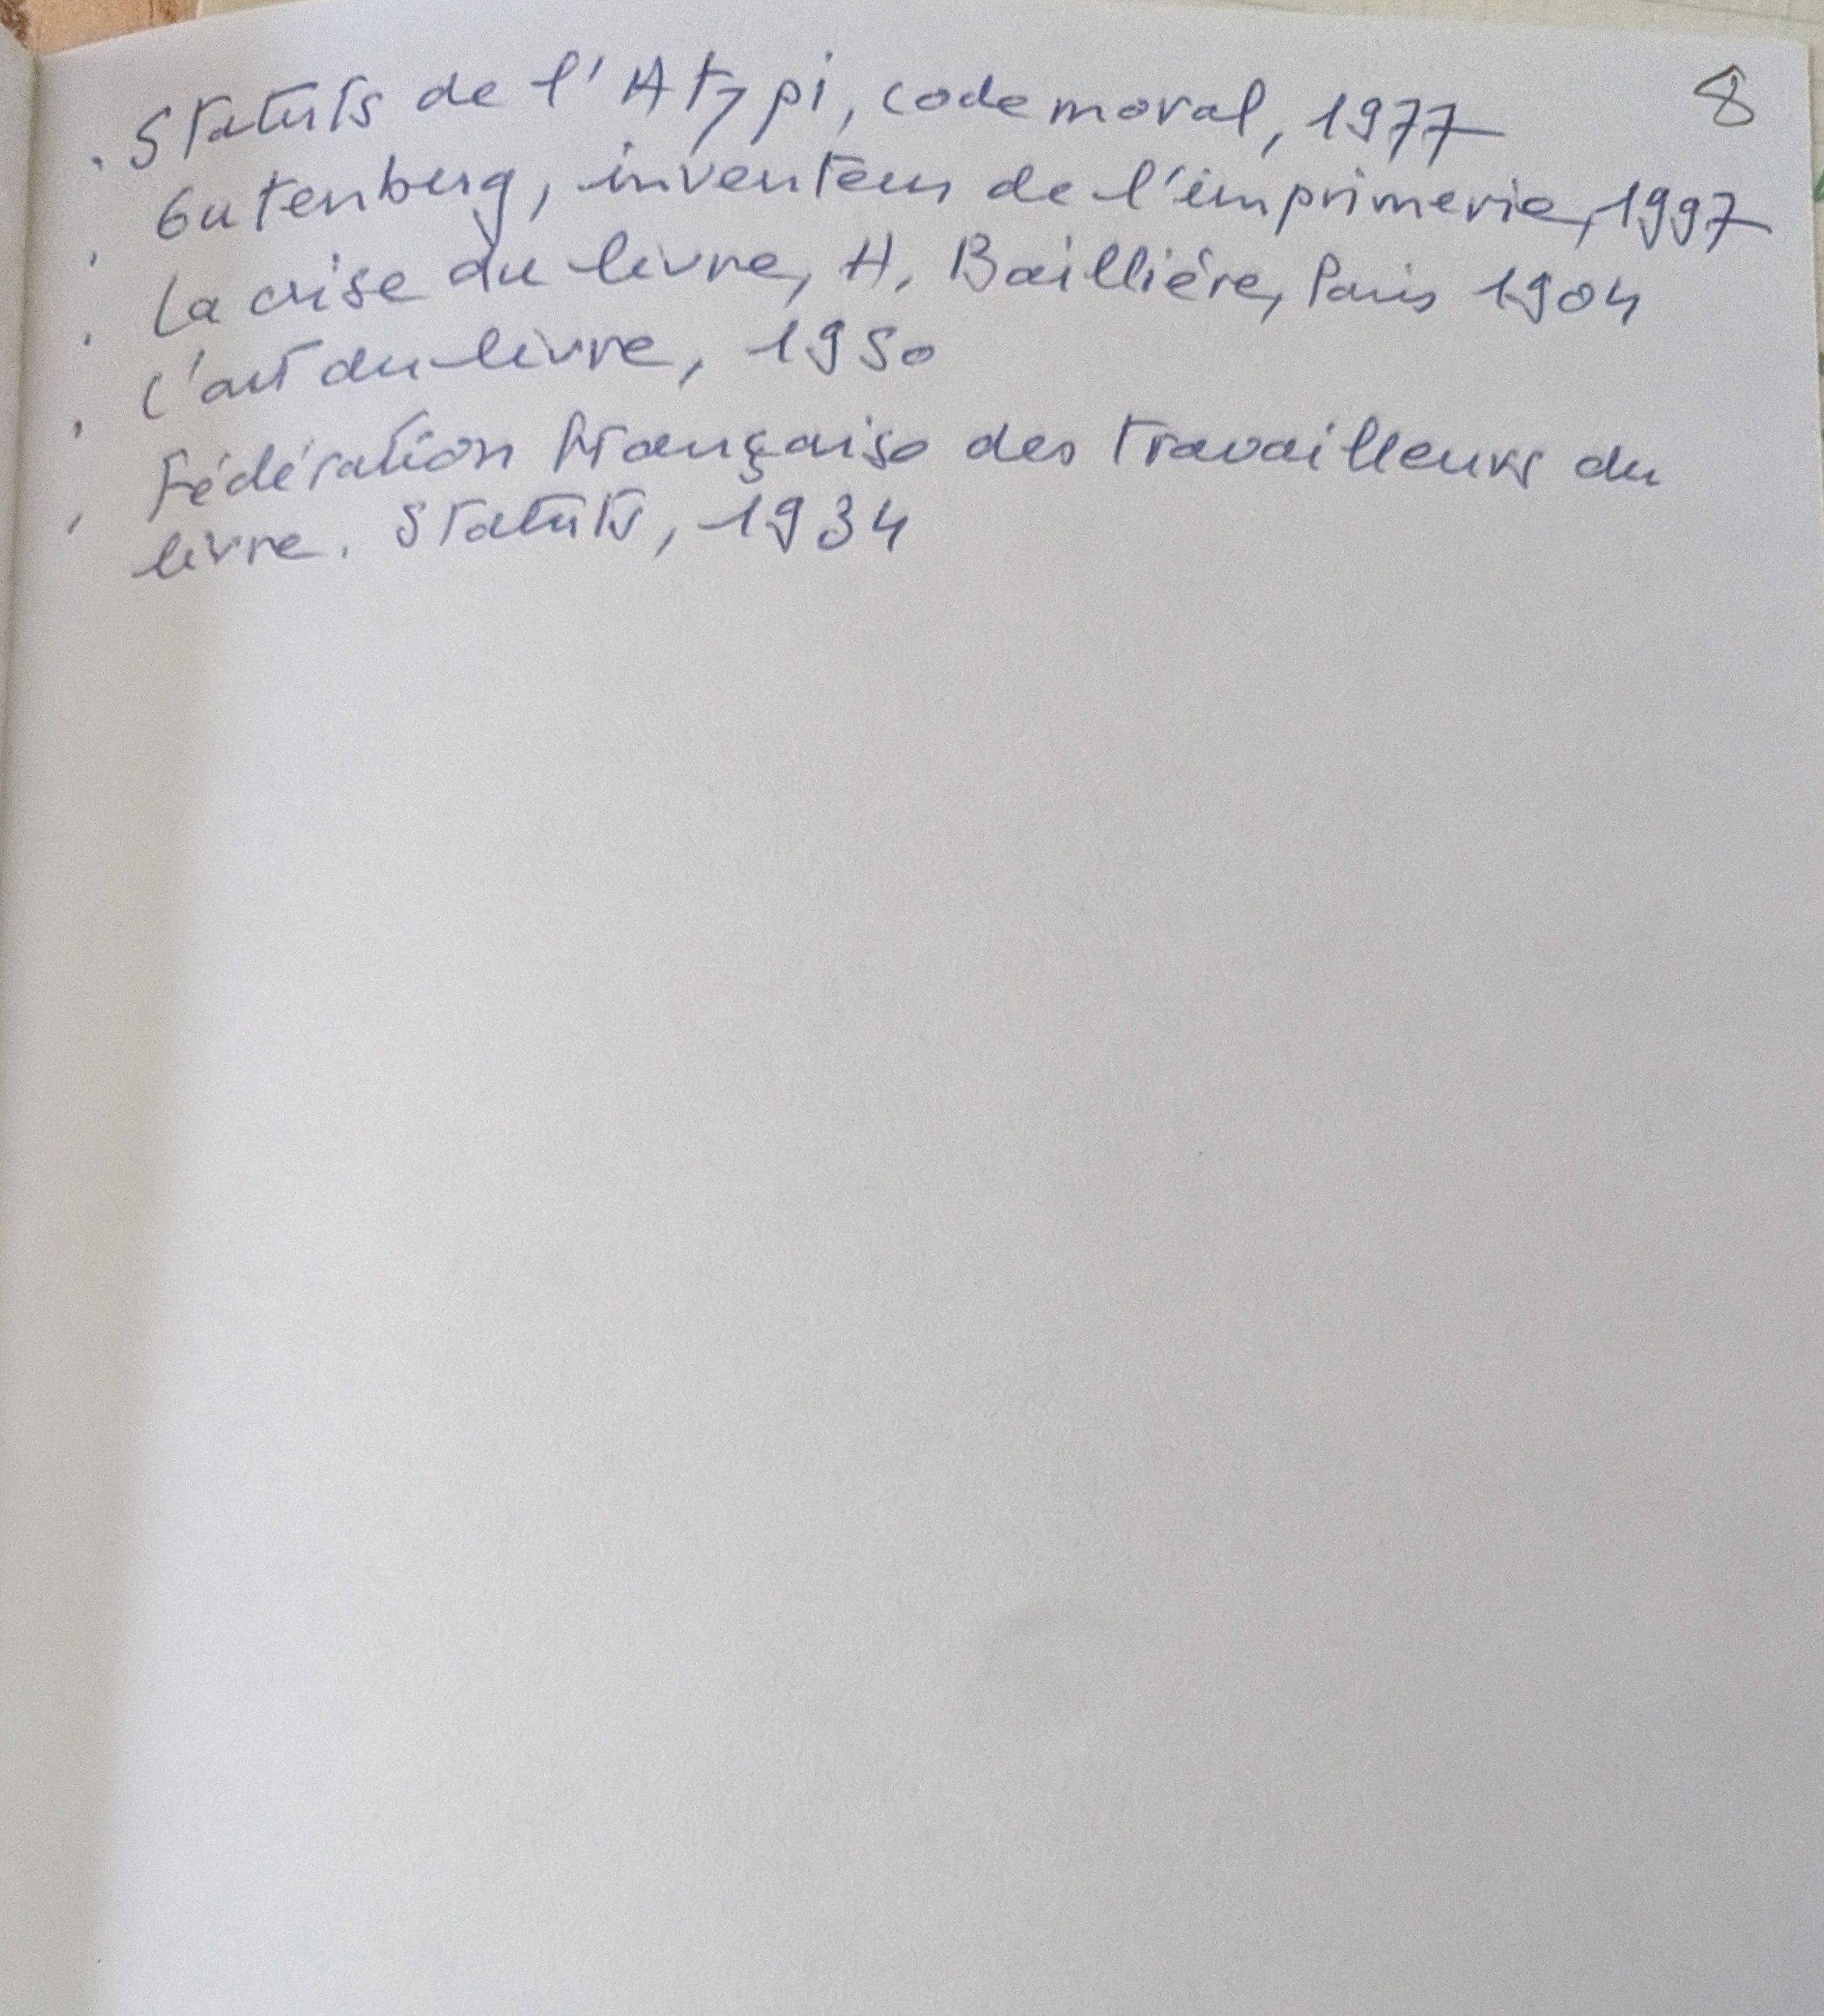 8
. Statuts de l'Atypi, code moral, 1977
. Gutenberg, inventeur de l'imprimerie, 1997
. La crise du livre, H. Baillière, Paris 1904
. L'art du livre, 1950
. Fédération française des travailleurs du
livre. Statuts, 1934